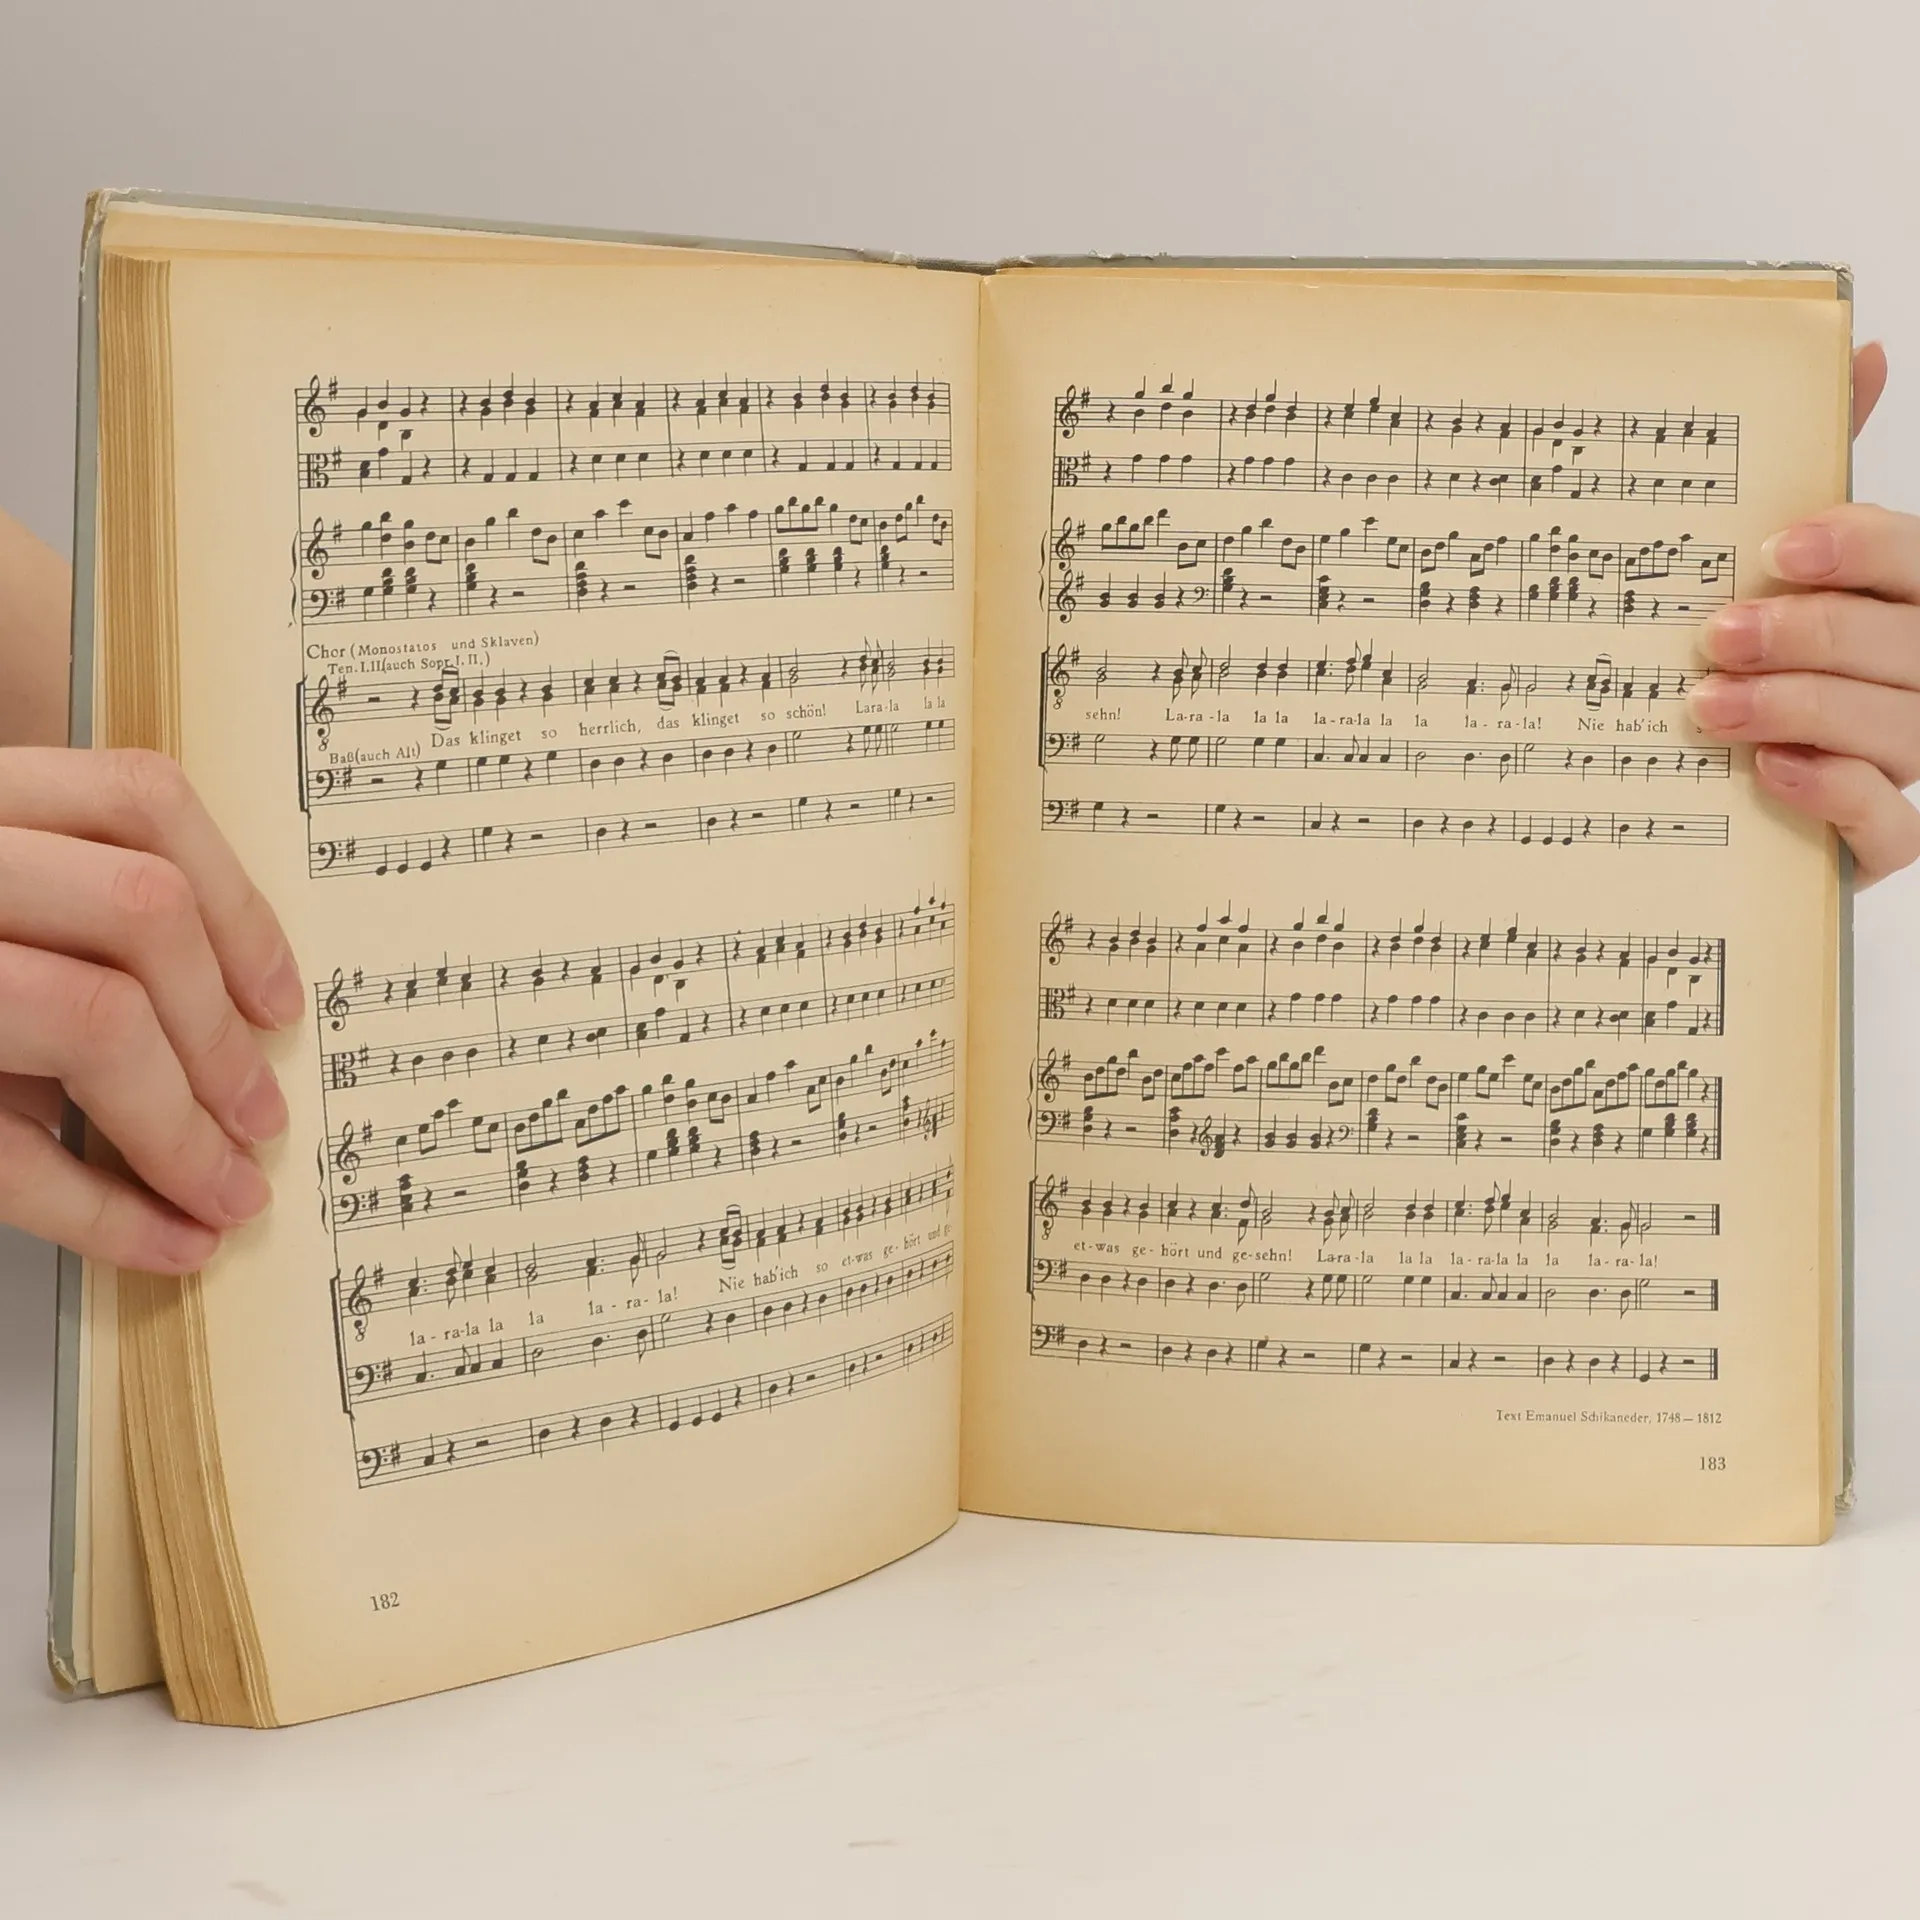 Chor (Monostatos und Sklaven)
Ten. I. II (auch Sopr. I. II.)
Das klinget so herrlich, das klinget so schön! Lara-la la la
Baß (auch Alt)
la - ra-la la la la - ra - la! Nie hab'ich so et-was ge - hört und ge-
182
sehn! La-ra-la la la la-ra-la la la la - ra-la! Nie hab'ich
et-was ge-hört und ge-sehn! La-ra-la la la la-ra-la la la la-ra-la!
Text Emanuel Schikaneder, 1748 – 1812
183